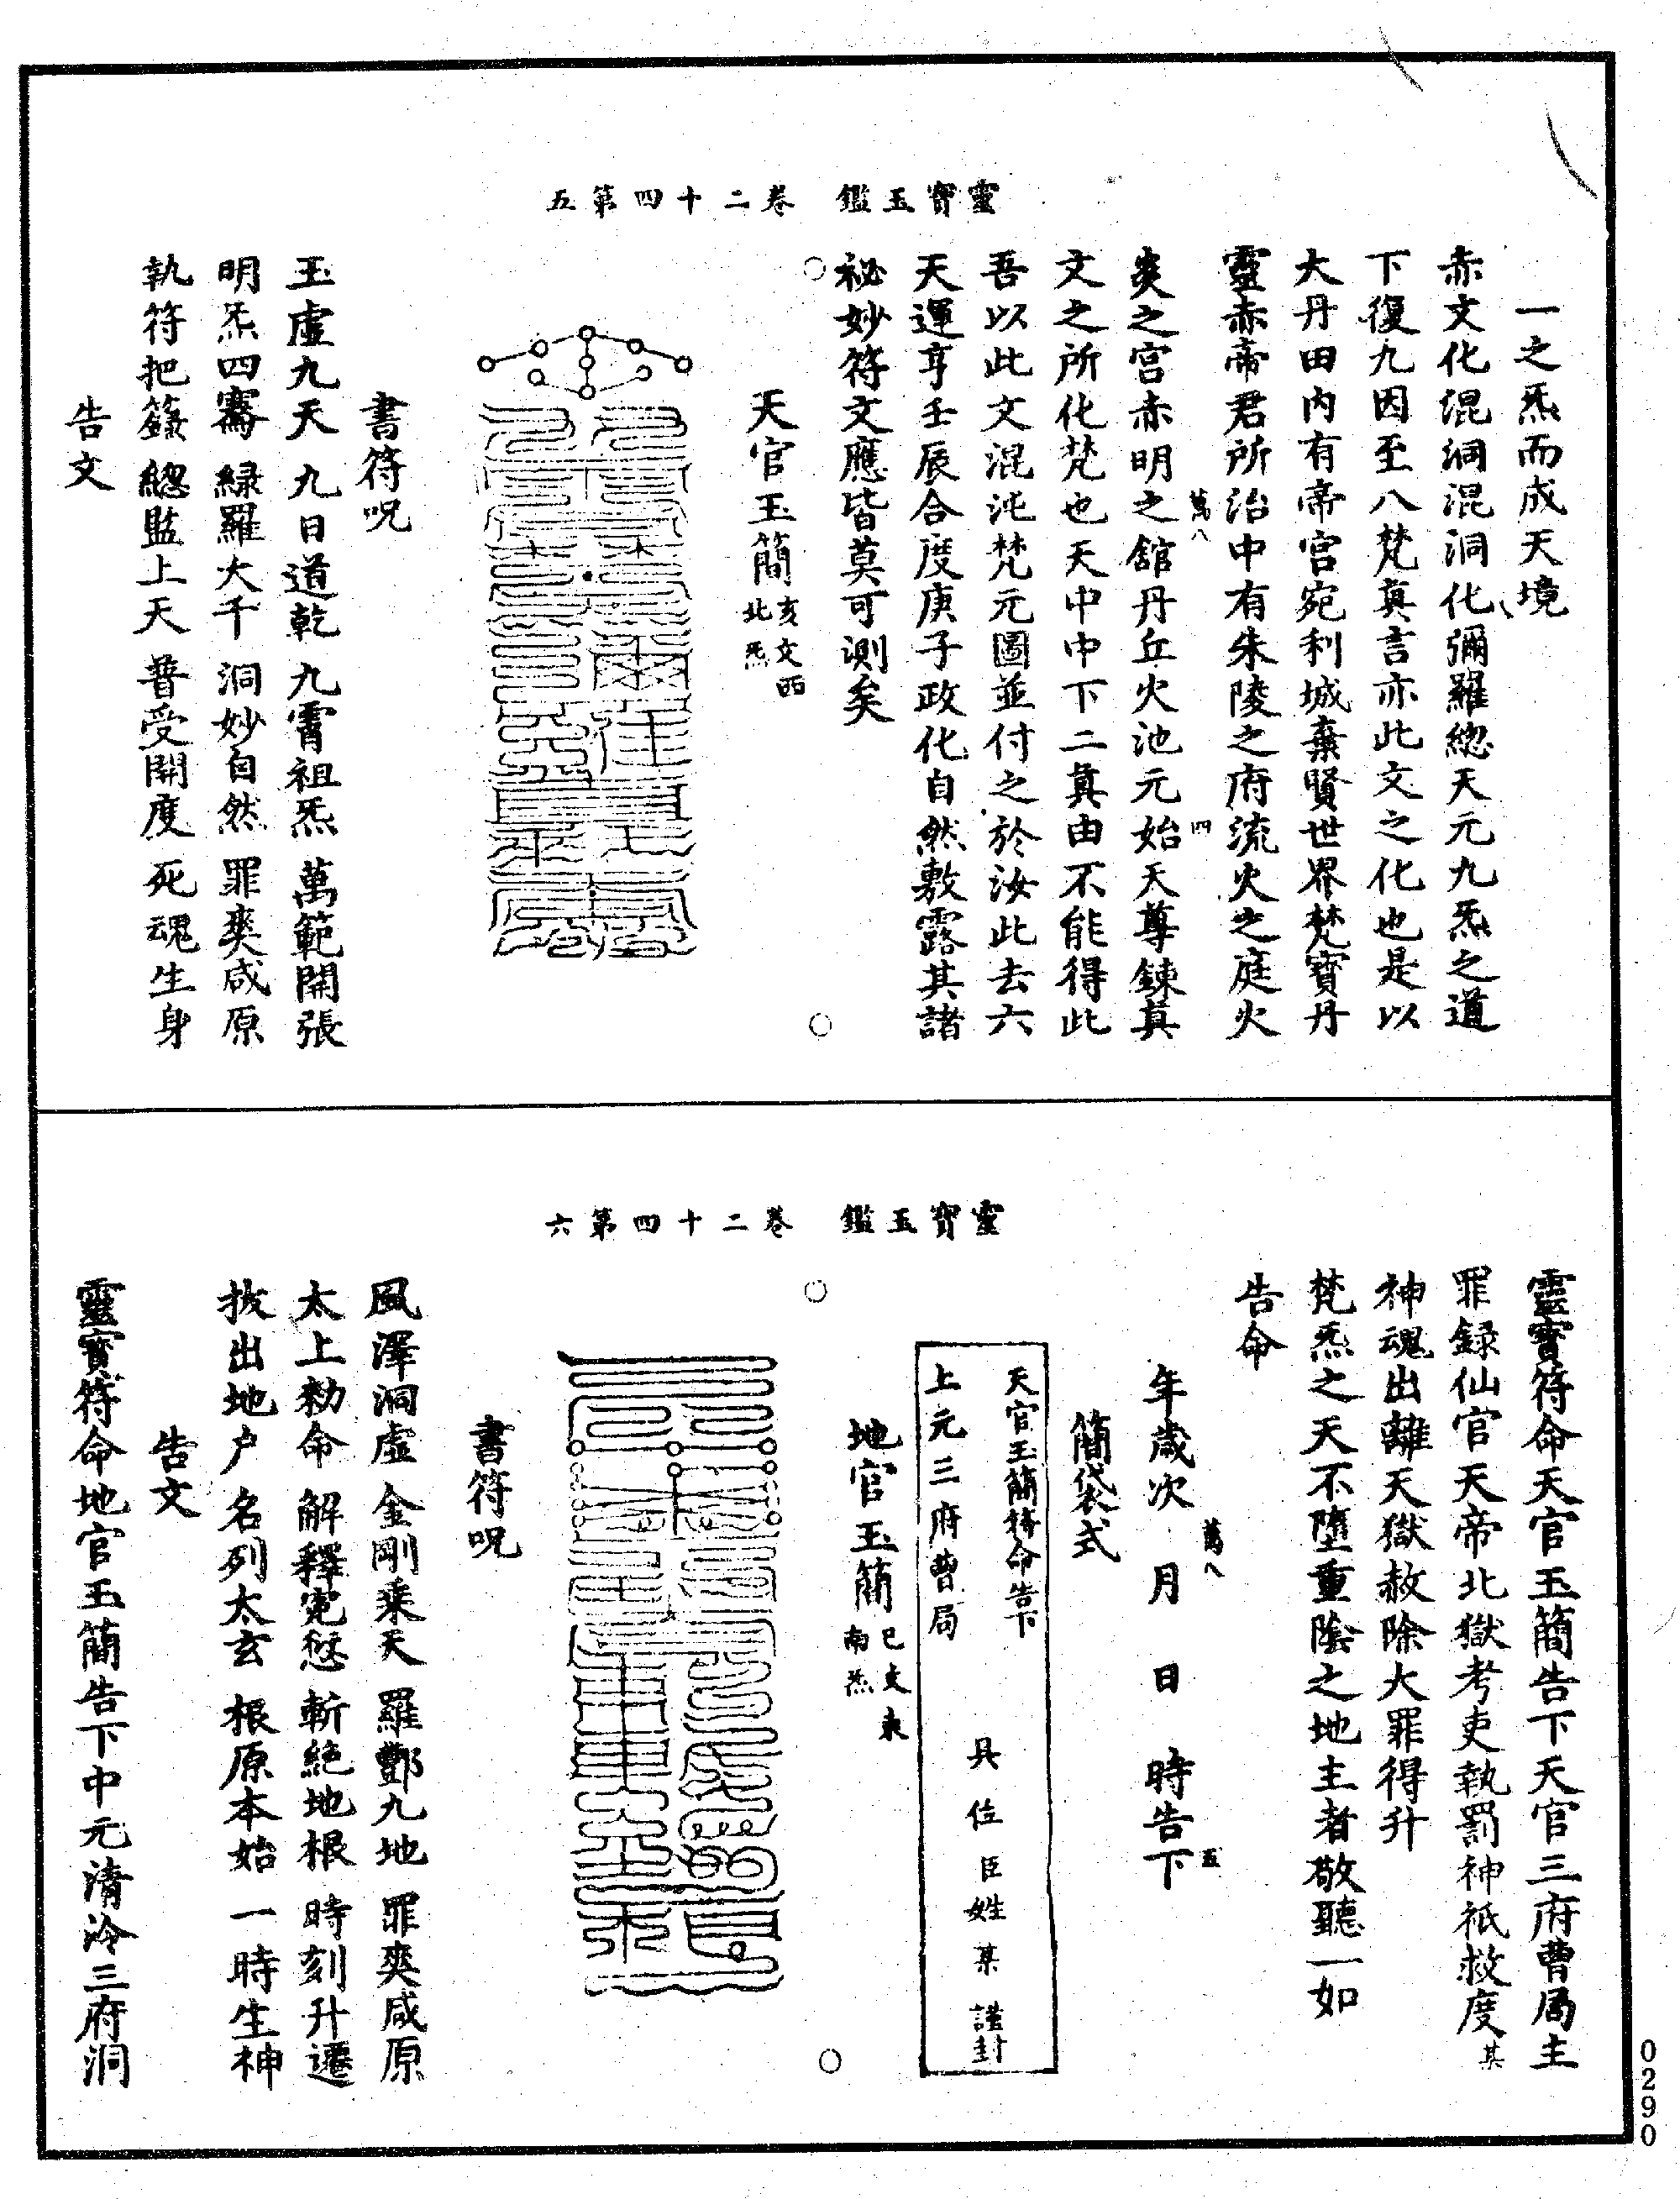 靈寶玉鑑　卷二十四第五
一之炁而成天境
赤文化混洞混洞化彌羅總天元九炁之道
下復九因至八梵真言亦此文之化也是以
大丹田內有帝宮宛利城棄賢世界梵寶丹
靈赤帝君所治中有朱陵之府流火之庭火
萬八　四
炎之宮赤明之舘丹丘火池元始天尊鍊真
文之所化梵也天中中下二真由不能得此
吾以此文混沌梵元圖並付之於汝此去六
天運亨壬辰合度庚子政化自然敷露其諸
祕妙符文應皆莫可測矣
天官玉簡亥文西北炁
書符呪
玉虛九天　九日道乾　九霄祖炁　萬範開張
明炁四騫　綠羅大千　洞妙自然　罪爽咸原
執符把籙　總監上天　普受開度　死魂生身
告文
靈寶玉鑑　卷二十四第六
靈寶符命天官玉簡告下天官三府曹局主
罪録仙官天帝北獄考吏執罰神祇救度某
神魂出離天獄赦除大罪得升
梵炁之天不墮重陰之地主者敬聽一如
告命
萬八　五
年歲次　月　日　時告下
簡袋式
天官玉簡符命告下
上元三府曹局
具位臣姓某　謹封
地官玉簡巳文東南炁
書符呪
風澤洞虛　金剛乘天　羅酆九地　罪爽咸原
太上勑命　解釋寃愆　斬絕地根　時刻升遷
拔出地户　名列太玄　根原本始　一時生神
告文
靈寶符命地官玉簡告下中元清泠三府洞
0290